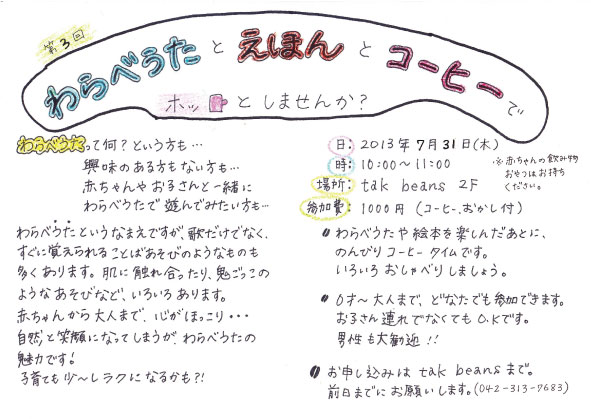 第3回
わらべうたとえほんとコーヒーで
ホッとしませんか?
わらべうたって何?という方も…
興味のある方もない方も…
赤ちゃんやお子さんと一緒に
わらべうたで遊んでみたい方も…
わらべうたというなまえですが、歌だけでなく、
すぐに覚えられることばあそびのようなものも
多くあります。肌に触れ合ったり、鬼ごっこの
ようなあそびなど、いろいろあります。
赤ちゃんから大人まで、心がほっこり・・・
自然と笑顔になってしまうが、わらべうたの
魅力です!
子育ても少〜しラクになるかも?!
日:2013年7月31日(木)
時:10:00〜11:00
※赤ちゃんの飲み物
おやつはお持ち
ください。
場所:tak beans 2F
参加費:1000円(コーヒー、おかし付)
わらべうたや絵本を楽しんだあとに、
のんびりコーヒータイムです。
いろいろおしゃべりしましょう。
0才〜大人まで、どなたでも参加できます。
お子さん連れでなくてもO.Kです。
男性も大歓迎!!
お申し込みはtak beansまで。
前日までにお願いします。(042-313-7683)